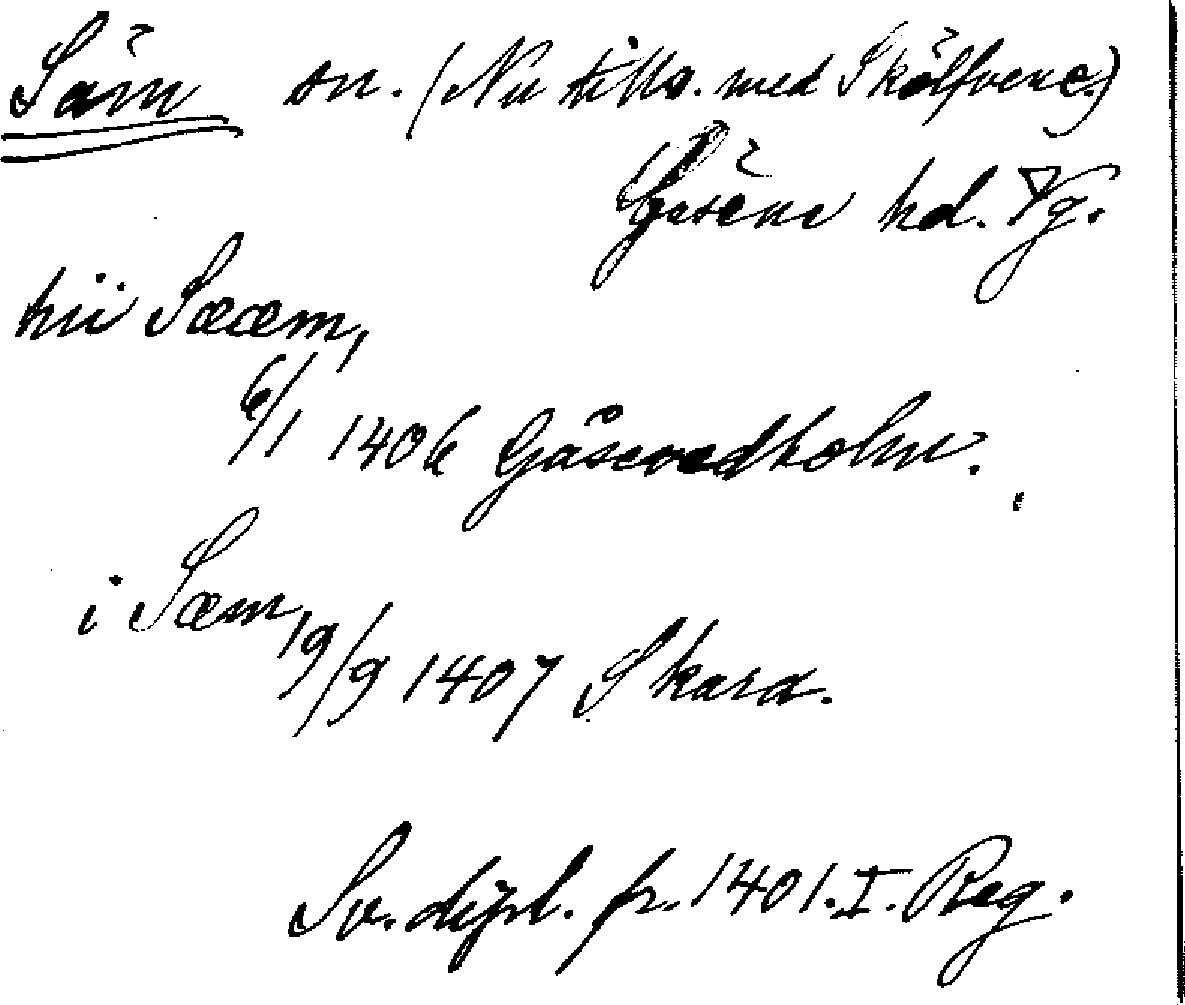 Säm sn. (Nu tills. med Skölfvene.)
Gäsene hd. Vg.
hii Sææm,
6/1 1406 Gåsevadholm.
i Sæm,
19/9 1407 Skara.
Sv. dipl. fr. 1401. I. Reg.